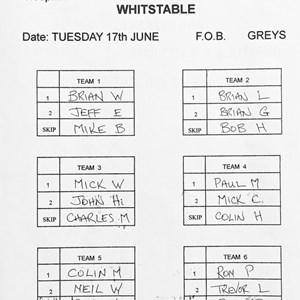 WHITSTABLE
Date: TUESDAY 17th JUNE F.O.B. GREYS
TEAM 1
1 BRIAN W
2 JEFF E
SKIP MIKE B
TEAM 2
1 BRIAN L
2 BRIAN G
SKIP BOB H
TEAM 3
1 MICK W
2 JOHN Hi
SKIP CHARLES M
TEAM 4
1 PAUL M
2 MICK C.
SKIP COLIN H
TEAM 5
1 COLIN M
2 NEIL W
TEAM 6
1 RON P
2 TREVOR L